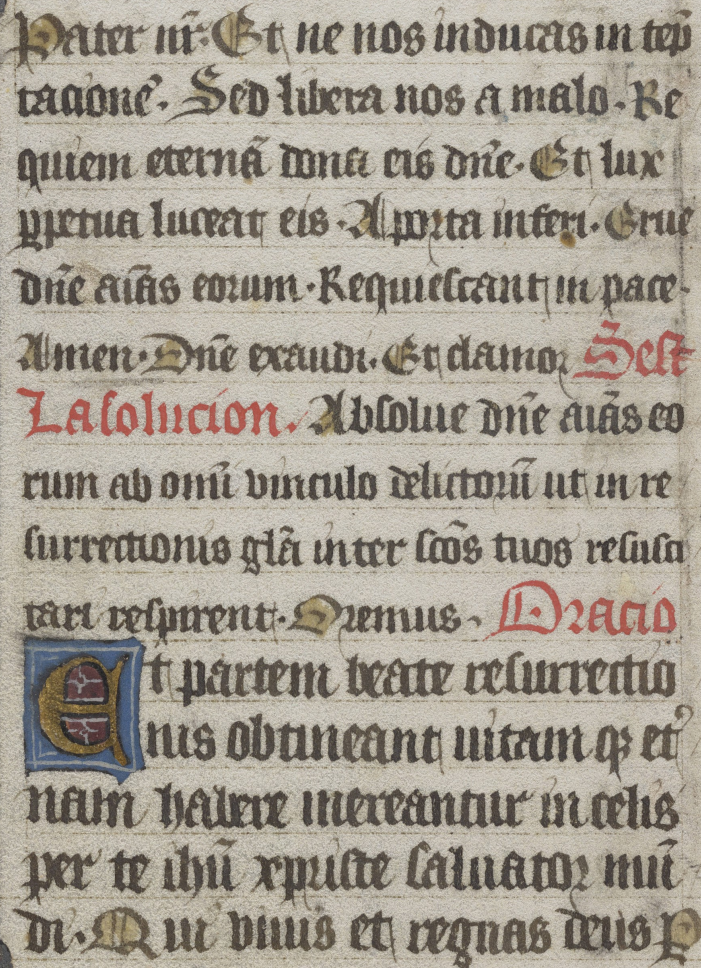 Pater nr̄. Et ne nos inducas in tep̄
tacione᷒. Sed libera nos a malo. Re
quiem eternā dona eis dn̄e. Et lux
ꝑpetua luceat eis. A porta inferi. Erue
dn̄e aīas eorum. Requiescant in pace.
Amen. Dn̄e exaudi. Et clamor Sest
La solucion. Absolue dn̄e aīas eo
rum ab omī vinculo delictorū ut in re
surrectionis gl̄a inter sc̄os tuos resusci
tari respirent. Oremus. Oracio
Et partem beate resurrectio
nis obtineant uitam qꝫ et᷒
nam habere mereantur in celis
per te ihū xpriste saluator mū
di. Qui viuis et regnas deus P